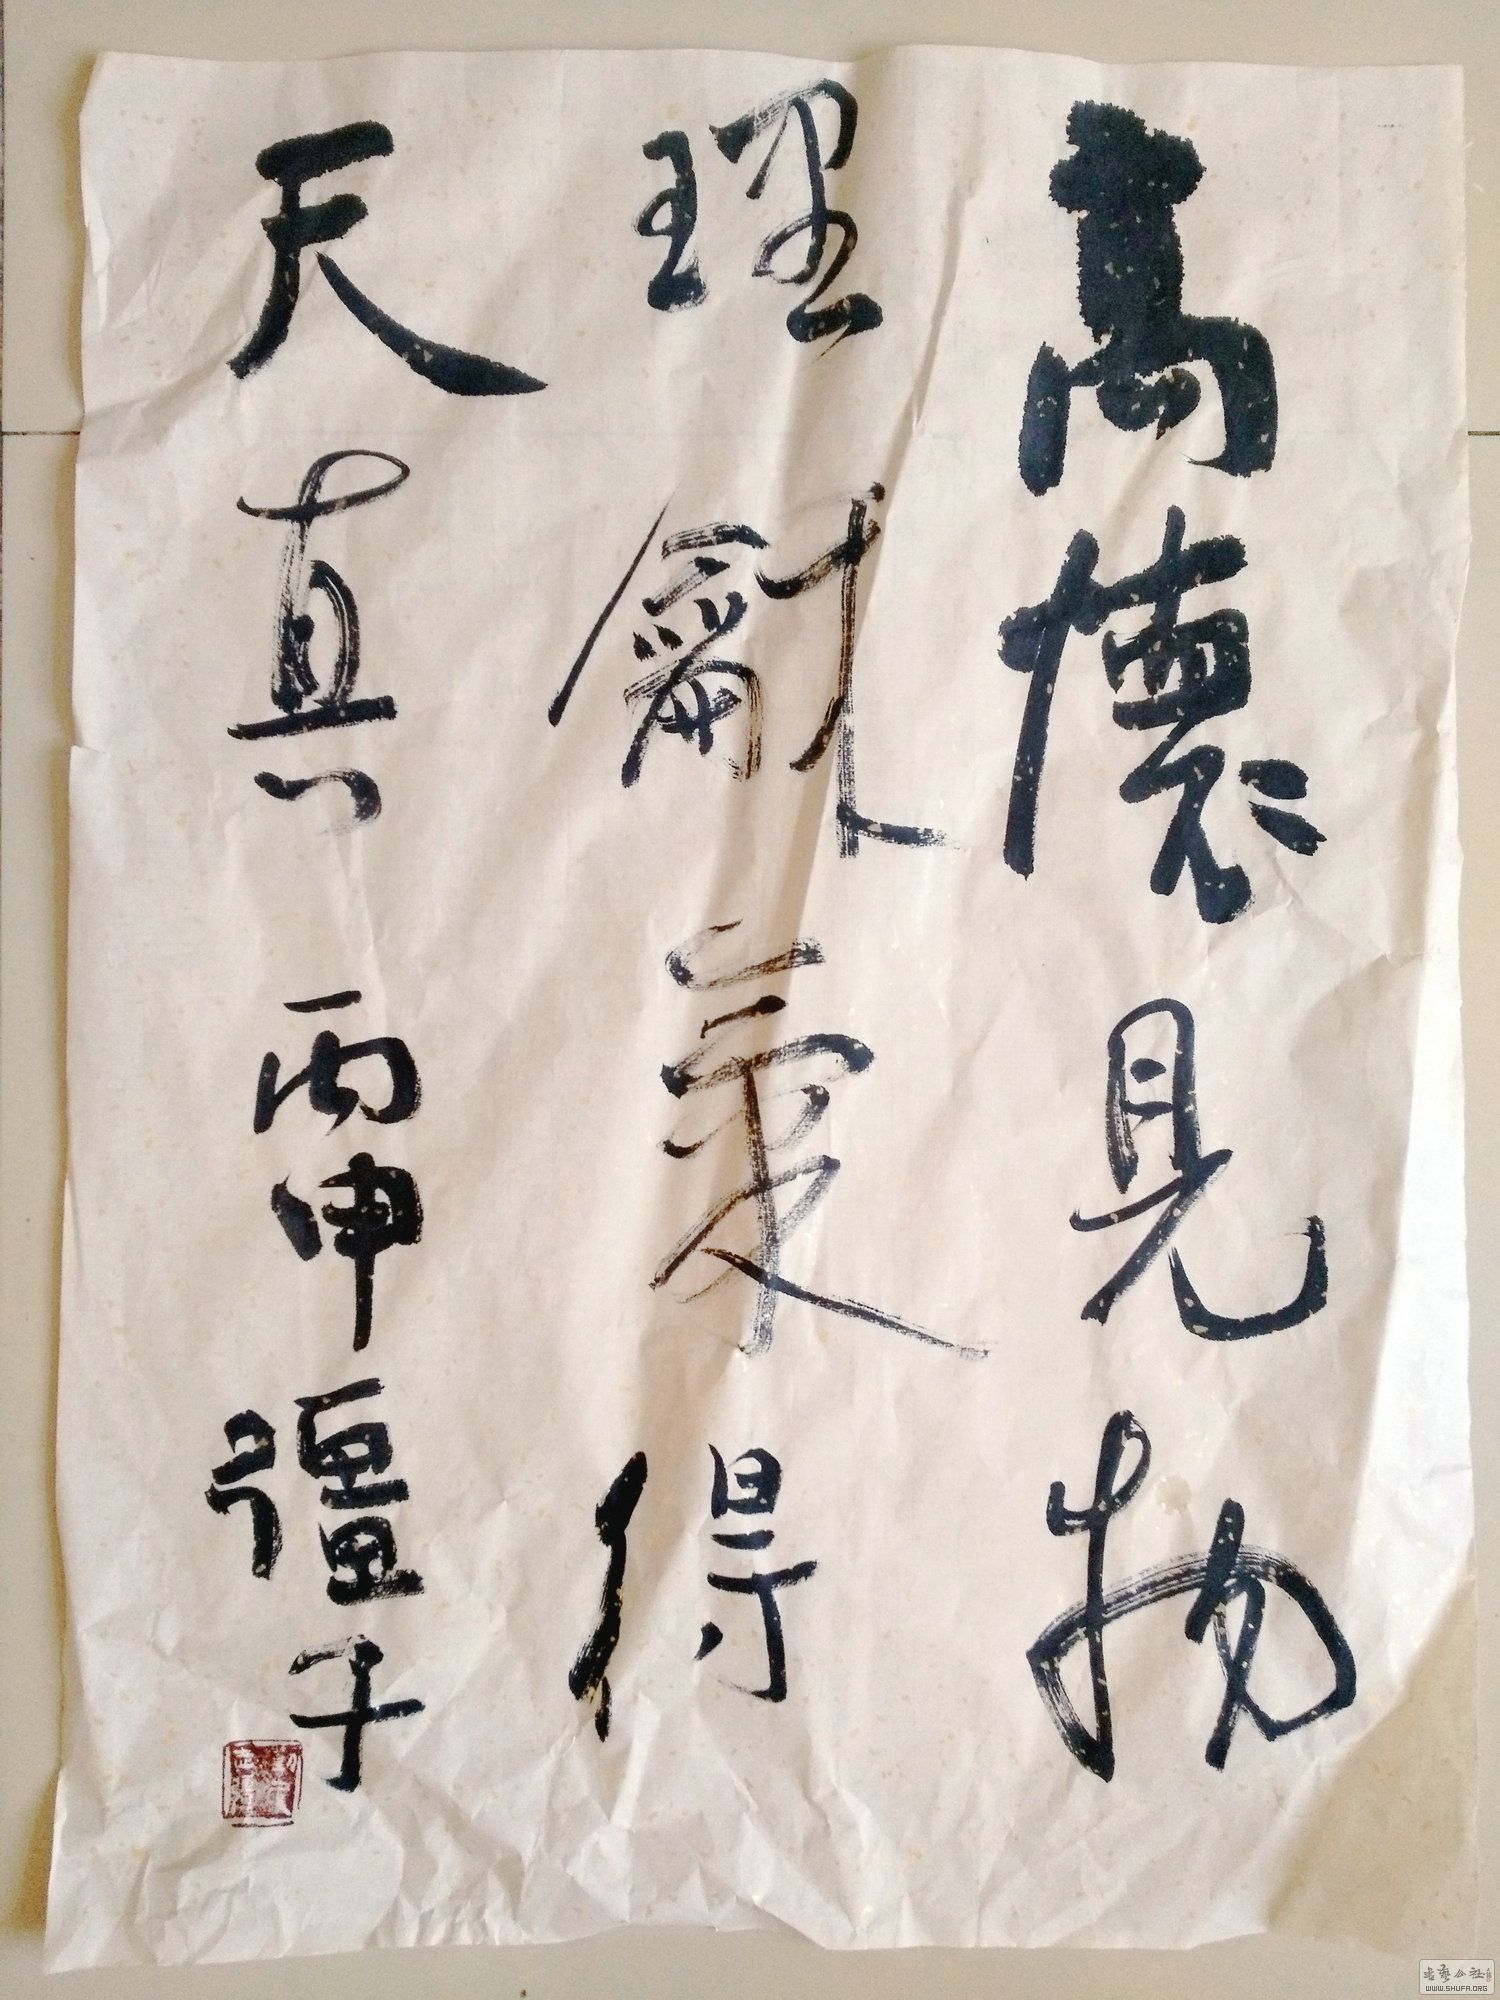 高懷見物
理龢氣得
天真 丙申 彊子
書藝公社
WWW.SHUFA.ORG